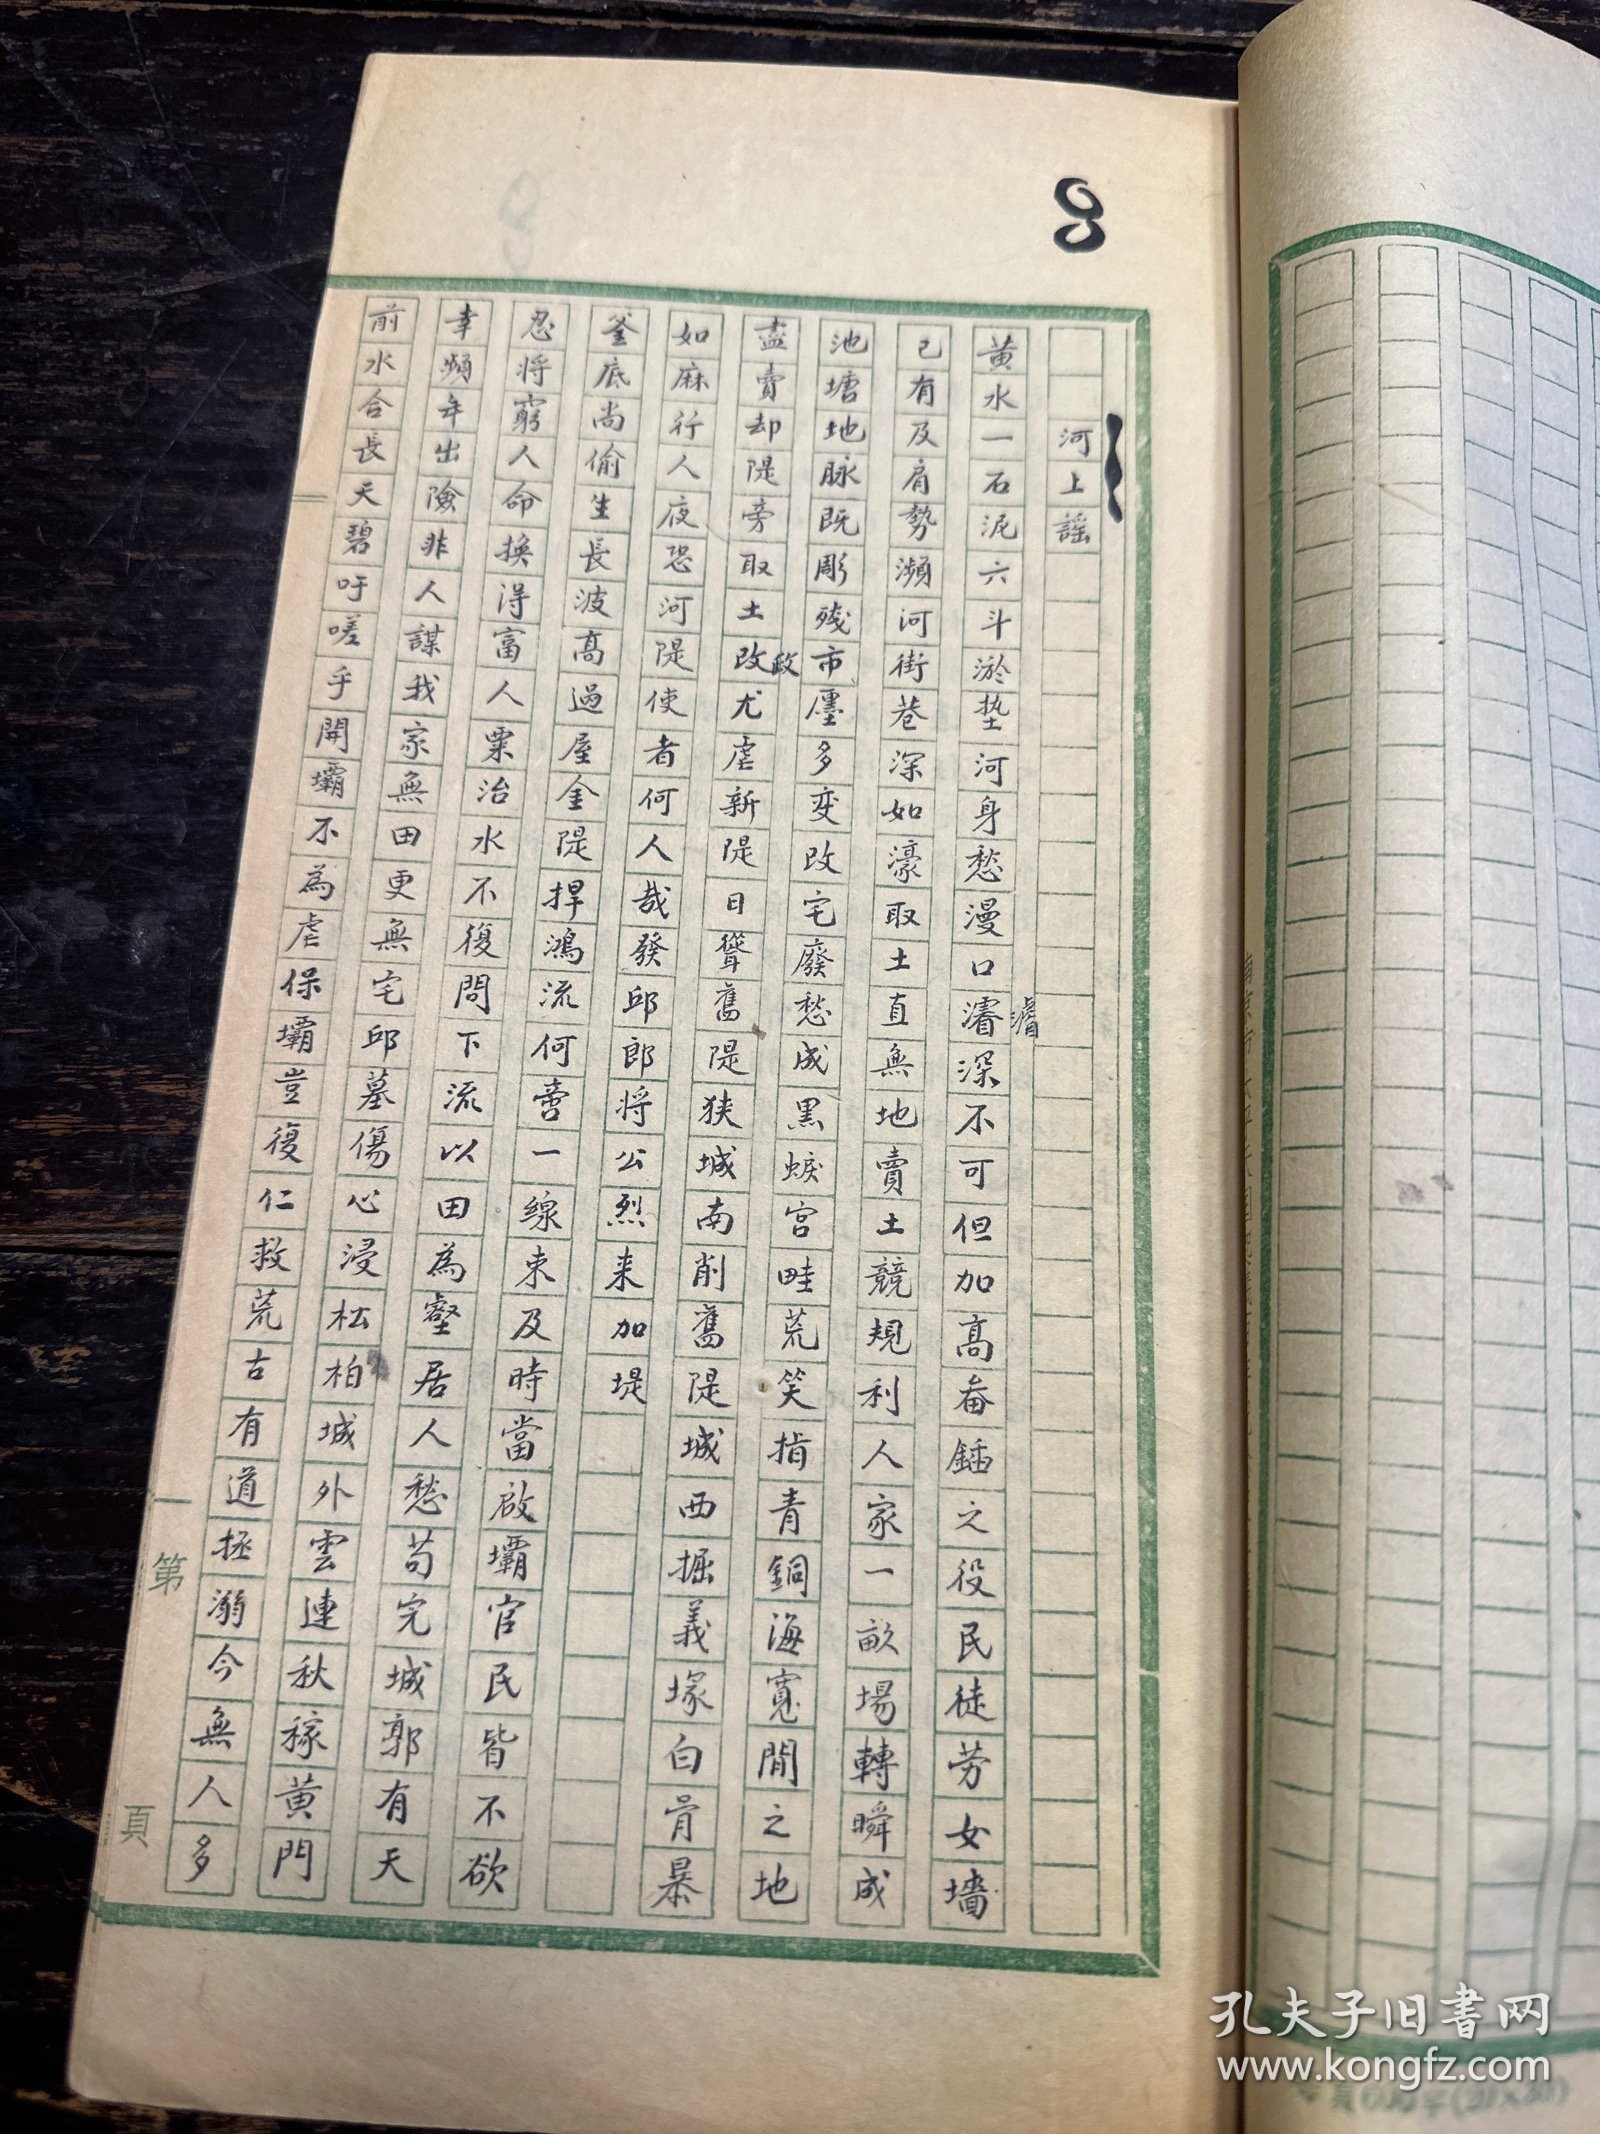 8
河上謠
黃水一石泥六斗淤墊河身愁漫口濬深不可但加高畚鍤之役民徒勞女墻
濬
已有及肩勢瀕河街巷深如濠取土直無地賣土競規利人家一畝場轉瞬成
池塘地脉既彫殘市廛多变改宅廢愁成黑蜧宮畦荒笑指青銅海寬閒之地
政
盡賣却隄旁取土改尤虐新隄日聳舊隄狹城南削舊隄城西掘義塚白骨暴
如麻行人夜恐河隄使者何人哉發邱郎將公烈来加堤
釜底尚偷生長波高過屋金隄捍鴻流何啻一線束及時當啟壩官民皆不欲
忍將窮人命換得富人粟治水不復問下流以田為壑居人愁苟完城郭有天
幸頻年出險非人謀我家無田更無宅邱墓傷心浸松柏城外雲連秋稼黃門
前水合長天碧吁嗟乎開壩不為虐保壩豈復仁救荒古有道拯溺今無人多
第 頁
孔夫子旧书网
www.kongfz.com